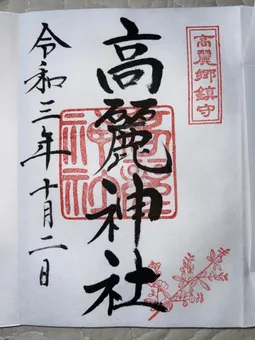 高麗郷鎮守
高麗神社
令和三年十月二日
高麗
神社